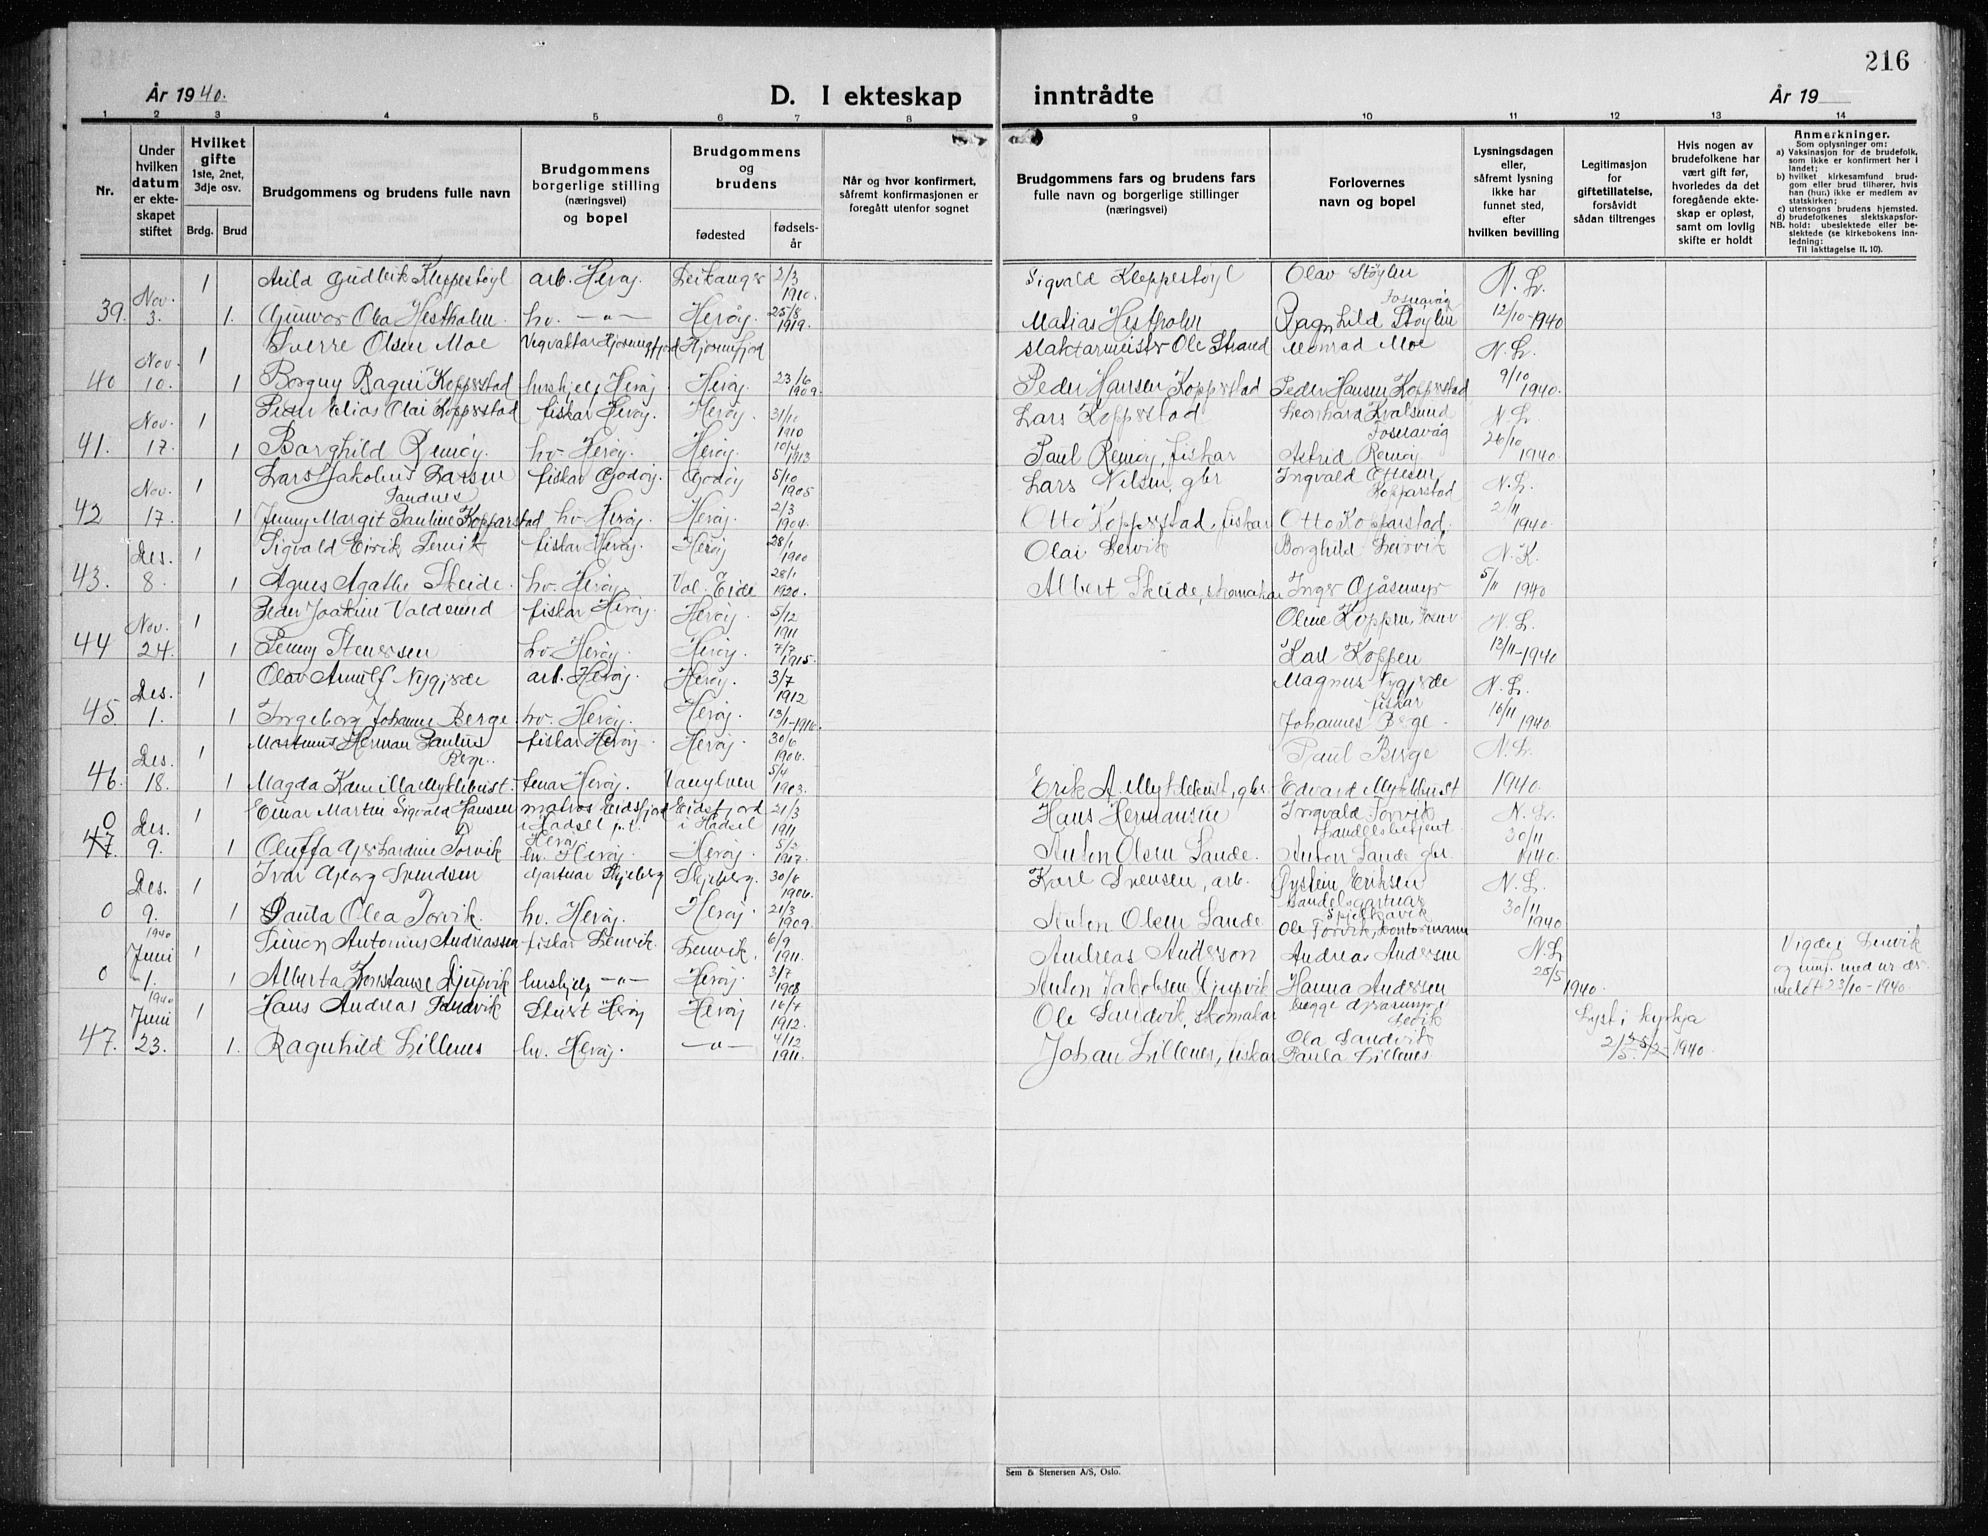 216
År 1940.
D. I ekteskap inntrådte
År 19
1 2 3 4 5 6 7 8 9 10 11 12 13 14
Nr.
Under hvilken datum er ekteskapet stiftet
Hvilket gifte 1ste, 2net, 3dje osv.
Brdg. Brud
Brudgommens og brudens fulle navn
Brudgommens borgerlige stilling (næringsvei) og bopel
Brudgommens og brudens
fødested
fødselsår
Når og hvor konfirmert, såfremt konfirmasjonen er foregått utenfor sognet
Brudgommens fars og brudens fars fulle navn og borgerlige stillinger (næringsvei)
Forlovernes navn og bopel
Lysningsdagen eller, såfremt lysning ikke har funnet sted, efter hvilken bevilling
Legitimasjon for giftetillatelse, forsåvidt sådan tiltrenges
Hvis nogen av brudefolkene har vært gift før, hvorledes da det foregående ekteskap er opløst, samt om lovlig skifte er holdt
Anmerkninger.
Som oplysninger om:
a) Vaksinasjon for de brudefolk, som ikke er konfirmert her i landet;
b) hvilket kirkesamfund brudgom eller brud tilhører, hvis han (hun) ikke er medlem av statskirken;
c) utensogns brudens hjemsted.
d) brudefolkenes slektskapsforhold: ubeslektede eller beslektede (se kirkebokens innledning:
NB. Til Iakttagelse II. 10).
1 Arild Gudleik Kleppestøyl arb. Herøy. Leikanger 2/3 1910. Sigvald Kleppestøyl Olav Støylen N. L.
39. Nov. 3. 1. Gunvor Olea Hestholm hv. -"- Herøy. 25/8 1919. Matias Hestholm Ragnhild Støylen Fosnavåg 12/10-1940
1 Sverre Olsen Moe Hjørungfjord slaktarmeister Ole Strand Konrad Moe N. L.
40 Nov. 10. 1 Borguy Ragni Kopperstad hushjelp Herøy Herøy. 23/6 1909. Peder Hansen Kopperstad Peder Hansen Kopperstad 9/10 1940.
1 Peder Elias Olai Kopperstad fiskar Herøy. Herøy. 31/10 1910 Lars Kopperstad Leonhard Kvalsund Fosnavåg N. L.
41. Nov. 17. 1 Borghild Remøy hv. Herøy. Herøy. 10/4 1913 Paul Remøy, fiskar Astrid Remøy 26/10 1940.
1 Lars Jakobus Larsen Sandnes fiskar Godøy. Godøy 5/10 1905 Lars Nilsen, gbr Ingvald Ottesen Kopparstad N. L.
42 Nov. 17. 1 Jenny Margit Pauline Kopparstad hv. Herøy. Herøy. 2/3 1904. Otto Kopperstad, fiskar Otto Kopparstad. 2/11 1940.
1 Sigvald Eirik Leivik fiskar Herøy. Herøy 28/1 1900 Olai Leivik Borghild Leivik N. K.
43. Des. 8. 1 Agnes Agathe Skeide. hv. Herøy. Vol. Eide 28/1 1920. Albert Skeide, skomakar Inger Gjåsmyr 5/11 1940
1 Peder Joakim Voldsund fiskar Herøy. Herøy. 5/12 1911 Oline Koppen, N. L.
44 Nov. 24. 1 Jenny Stenersen hv Herøy. Herøy. 7/7 1915. Karl Koppen 13/11-1940
1 Olav Arnulf Nygjerde arb. Herøy. Herøy. 3/7 1912 Magnus Nygjerde fiskar N. L.
45. Des. 1. 1 Ingeborg Johanne Berge hv. Herøy. Herøy. 13/11-1916. Johannes Berge. 16/11 1940
1 Martinus Herman Paulus Berge. fiskar Herøy. Herøy. 30/6 1906. Paul Berge N. L.
46. Des. 18. 1 Magda Kamilla Myklebust. Herøy. Vanylven 5/4 1903. Erik A. Myklebust, gbr. Edvard Myklebust 1940
1 Einar Martin Sigvald Hansen matros Eidsfjord i Hadsel p.t. Herøy Eidsfjord i Hadsel 21/3 1911 Hans Hermansen Ingvald Torvik handelsbetjent. N. L.
0 47. Des. 9. 1 Oluffa Torvik hv. Herøy. Herøy. 5/2 1907. Anton Olsen Sande. Anton Sande gbr. 30/11 1940.
1 Ivar Georg Svendsen Gartnar Skjeberg Skjeberg. 30/6 1906. Karl Svensen, arb. Øystein Eriksen handelsgartnar Spjelkavik N. L.
0 Des. 9. 1 Paula Olea Torvik. hv. Herøy. Herøy. 21/3 1909. Anton Olsen Sande Ole Torvik, kontormann 30/11 1940
1 Simon Antonius Andreassen fiskar Lenvik. Lenvik. 6/9 1911. Andreas Anderson Andreas Andersen N. L. Vigde i Lenvik
0 1940 Juni 1. 1 Alberta Konstanse Djupvik hushjelp -"- Herøy 3/7 1908 Anton Jakobsen Djupvik Hanna Andersen 25/5 1940. og meldt 23/10-1940.
1 Hans Andreas Sandvik Stuert Herøy Herøy 16/7 1912. Ole Sandvik, skomakar begge Lyst i kyrkja
47. 1940 Juni 23. 1. Ragnhild Lillenes hv. Herøy. -"- 4/12 1911. Johan Lillenes, fiskar Ola Sandvik Paula Lillenes 1940.
Sem & Stenersen A/S, Oslo.